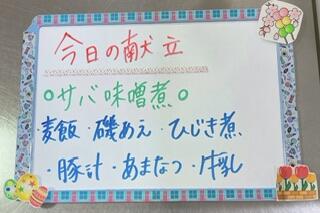 今日の献立
○サバ味噌煮○
・麦飯・磯あえ・ひじき煮
・豚汁・あまなつ・牛乳